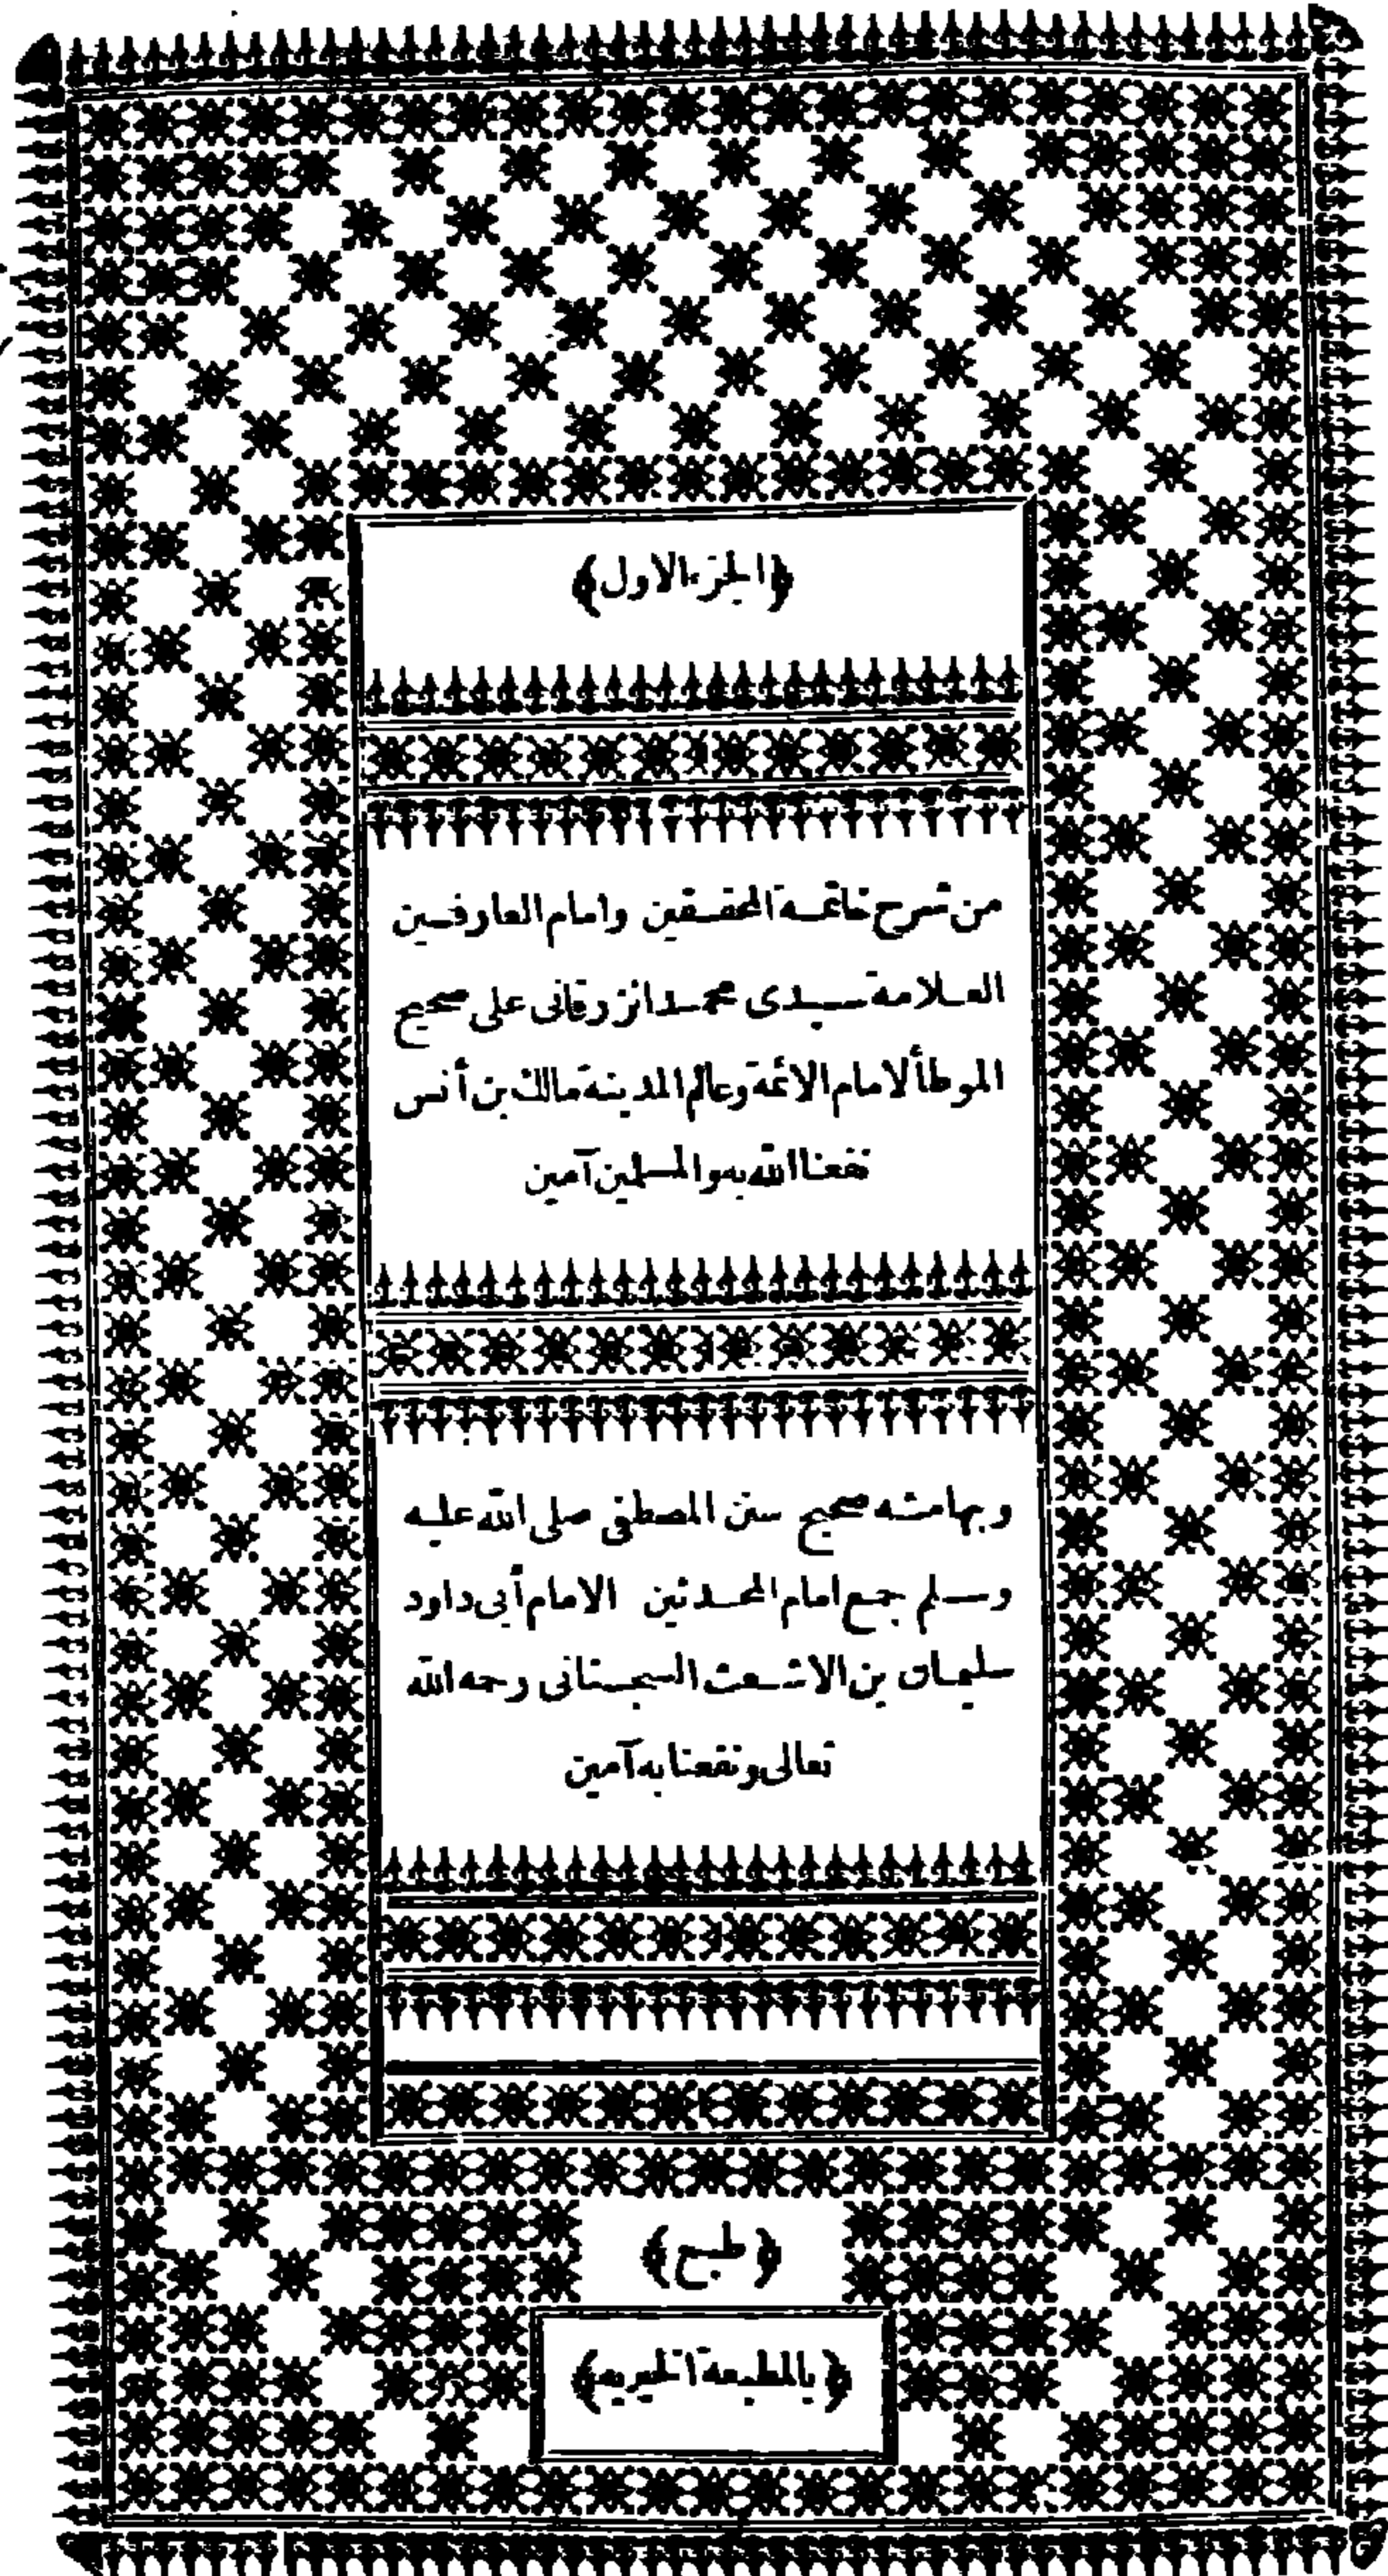 ﴿الجزء الاول﴾
من شرح خاتمة المحققين وامام العارفين
العلامة سيدى محمد الزرقانى على صحيح
الموطأ لامام الائمة وعالم المدينة مالك بن أنس
نفعنا الله به والمسلمين آمين
وبهامشه صحيح سنن المصطفى صلى الله عليه
وسلم جمع امام المحدثين الامام أبى داود
سليمان بن الاشعث السجستانى رحمه الله
تعالى ونفعنا به آمين
﴿طبع﴾
﴿بالمطبعة الخيريه﴾